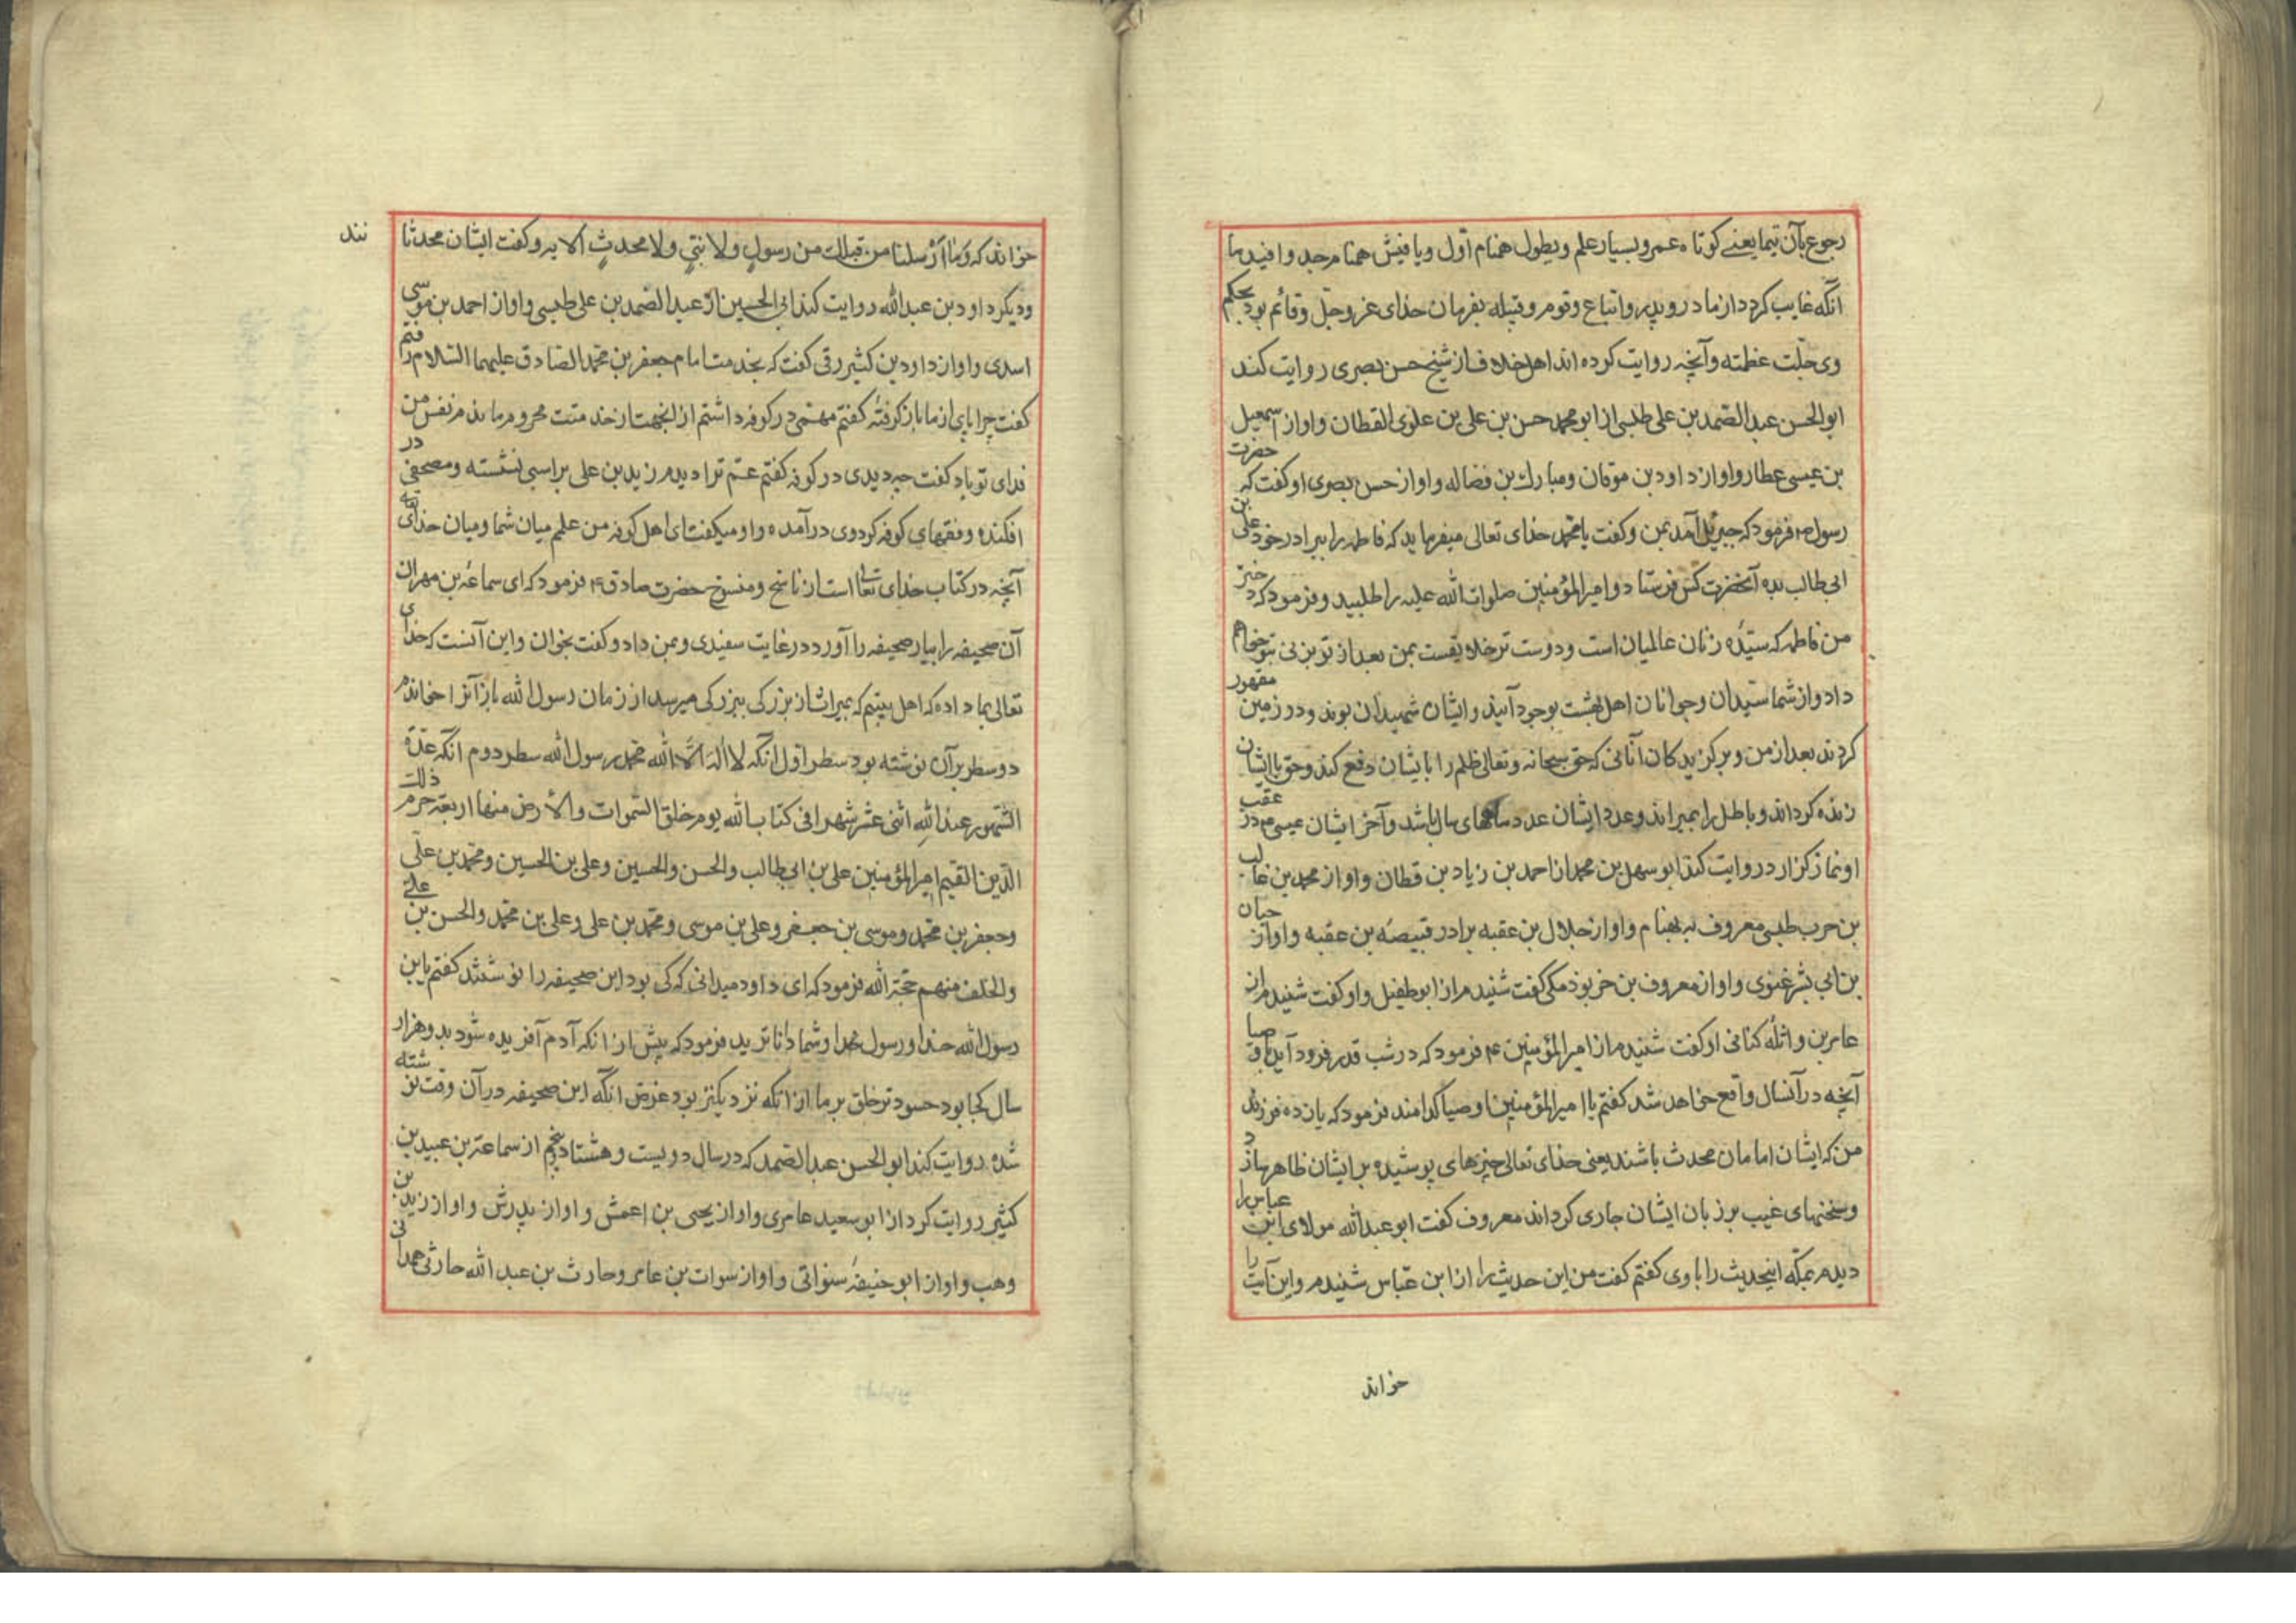 رجوع بآن تیما یعنے کوتاه عمر و بسیار علم و بطول همنام اوّل و یافیش همنام جد و افیدما
انگه غایب کردد از مادر و پدر و اتباع و قوم و قبیله بفرمان خدای عزّ و جلّ و قائم بود بحکم
وی جلّت عظمته و آنچه روایت کرده اند اهل خلاف از شیخ حسن بصری روایت کند
ابو الحسن عبد الصّمد بن علی طبسی از ابو محمد حسن بن علی بن علوی القطان و او از اسمعیل
بن عیسی عطار و او از داود بن موقان و مبارک بن فضاله و او از حسن بصری او کفت که حضرت
رسول ص فرمود که جبرئیل آمد بمن و کفت یا محمّد خدای تعالی میفرماید که فاطمه را ببرادر خود علی بن
ابی طالب بده آنحضرت کس فرستاد و امیر المؤمنین صلوات الله علیه را طلبید و فرمود که دختر
من فاطمه که سیّدۀ زنان عالمیان است و دوست تر خلایقست بمن بعد از تو بزنی بتو خواهم
داد و از شما سیّدان و جوانان اهل بهشت بوجود آیند و ایشان شهیدان بوند و در زمین مقهور
کردند بعد از من و برکزیدکان آنانی که حق سبحانه و تعالی ظلم را بایشان دفع کند و حق باایشان
زنده کرداند و باطل را بمیراند و عدد ایشان عدد ماههای سال باشد و آخر ایشان عیسی ع در عقب
او نماز کزارد روایت کند ابو سهل بن محمد از احمد بن زیاد بن قطان و او از محمد بن غالب
بن حرب طبسی معروف به بهنام و او از حلال بن عقبه برادر قبیصه بن عقبه و او از حبان
بن ابی بشر غنوی و او از معروف بن خربوذ مکی کفت شنیدم از ابو طفیل و او کفت شنیدم از
عامر بن واثله کنانی او کفت شنیدم از امیر المؤمنین ع فرمود که در شب قدر فرود آید باوصیا
آنچه در آنسال واقع خواهد شد کفتم یا امیر المؤمنین اوصیا کدامند فرمود که یازده فرزند
من که ایشان امامان محدث باشند یعنی خدای تعالی چیزهای پوشیده بر ایشان ظاهر سازد
و سخنهای غیب بر زبان ایشان جاری کرداند معروف کفت ابو عبدالله مولای ابن عباس را
دیدم بمکّه اینحدیث را با وی کفتم کفت من این حدیث را از ابن عبّاس شنیدم و این آیت را
خواند
خواند که وَمَا اَرْسلنا من قبلك من رسولٍ ولا نبّيٍ ولا محدثٍ الایه و کفت ایشان محدثا نند
و دیکر داود بن عبدالله روایت کند ابی الحسین از عبد الصّمد بن علی طبسی و او از احمد بن موسی
اسدی و او از داود بن کثیر رقی کفت که بخدمت امام جعفر بن محمّد الصّادق علیهما السّلام رفتم
کفت چرا پای از ما باز کرفتۀ کفتم مهمّی در کوفه داشتم از انجهت از خدمتت محروم ماندم نفس من
فدای تو باد کفت چه دیدی در کوفه کفتم عمّ ترا دیدم زید بن علی براسبی نشسته و مصحفی در
افکنده و فقهای کوفه کرد وی در آمده و او میکفت ای اهل کوفه من علمم میان شما و میان خدای تعالی
آنچه در کتاب خدای تعالی است از ناسخ و منسوخ حضرت صادق ع فرمود که ای سماعة بن مهران
آن صحیفه را بیار صحیفه را آورد در غایت سفیدی و بمن داد و کفت بخوان و این آنست که خدای
تعالی بما داده که اهل بیتیم که بمیراث از بزرکی ببزرکی میرسد از زمان رسول الله باز آنرا خواندم
دو سطر بر آن نوشته بود سطر اوّل انکه لا اله الّا الله محمّد رسول الله سطر دوم انکه عدّة
الشّهور عند الله اثنی عشر شهرا فی کتاب الله یوم خلق السّموات والأرض منها اربعة حرم ذلك
الدّین القیم امیر المؤمنین علی بن ابی طالب والحسن والحسین وعلی بن الحسین ومحمّد بن علی
وجعفر بن محمّد وموسی بن جعفر وعلی بن موسی ومحمّد بن علی وعلی بن محمّد والحسن بن علی
والخلف منهم حجّة الله فرمود که ای داود میدانی که کی بود این صحیفه را نوشتند کفتم یا بن
رسول الله خدا و رسول خدا و شما داناترید فرمود که پیش از انکه آدم آفریده شود بدو هزار
سال کجا بود حسود تر خلق بر ما از انکه نزدیکتر بود غرض انکه این صحیفه در آن وقت نوشته
شده روایت کند ابو الحسن عبد الصّمد که در سال دویست و هشتاد و پنجم از سماعة بن عبید بن
کثیر روایت کرد از ابو سعید عامری و او از یحیی بن اعمش و او از پدرش و او از زید بن
وهب و او از ابو حنیفه سنواتی و او از سوات بن عامر و حارث بن عبدالله حارثی همدانی